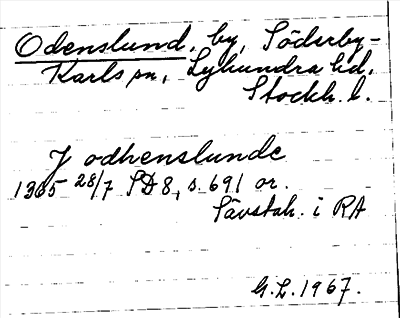 Odenslund, by, Söderby-
Karls sn, Lyhundra hd,
Stockh. l.
J odhenslunde
1365 28/7 SD 8, s. 691 or.
Sävstah. i RA
G.L. 1967.